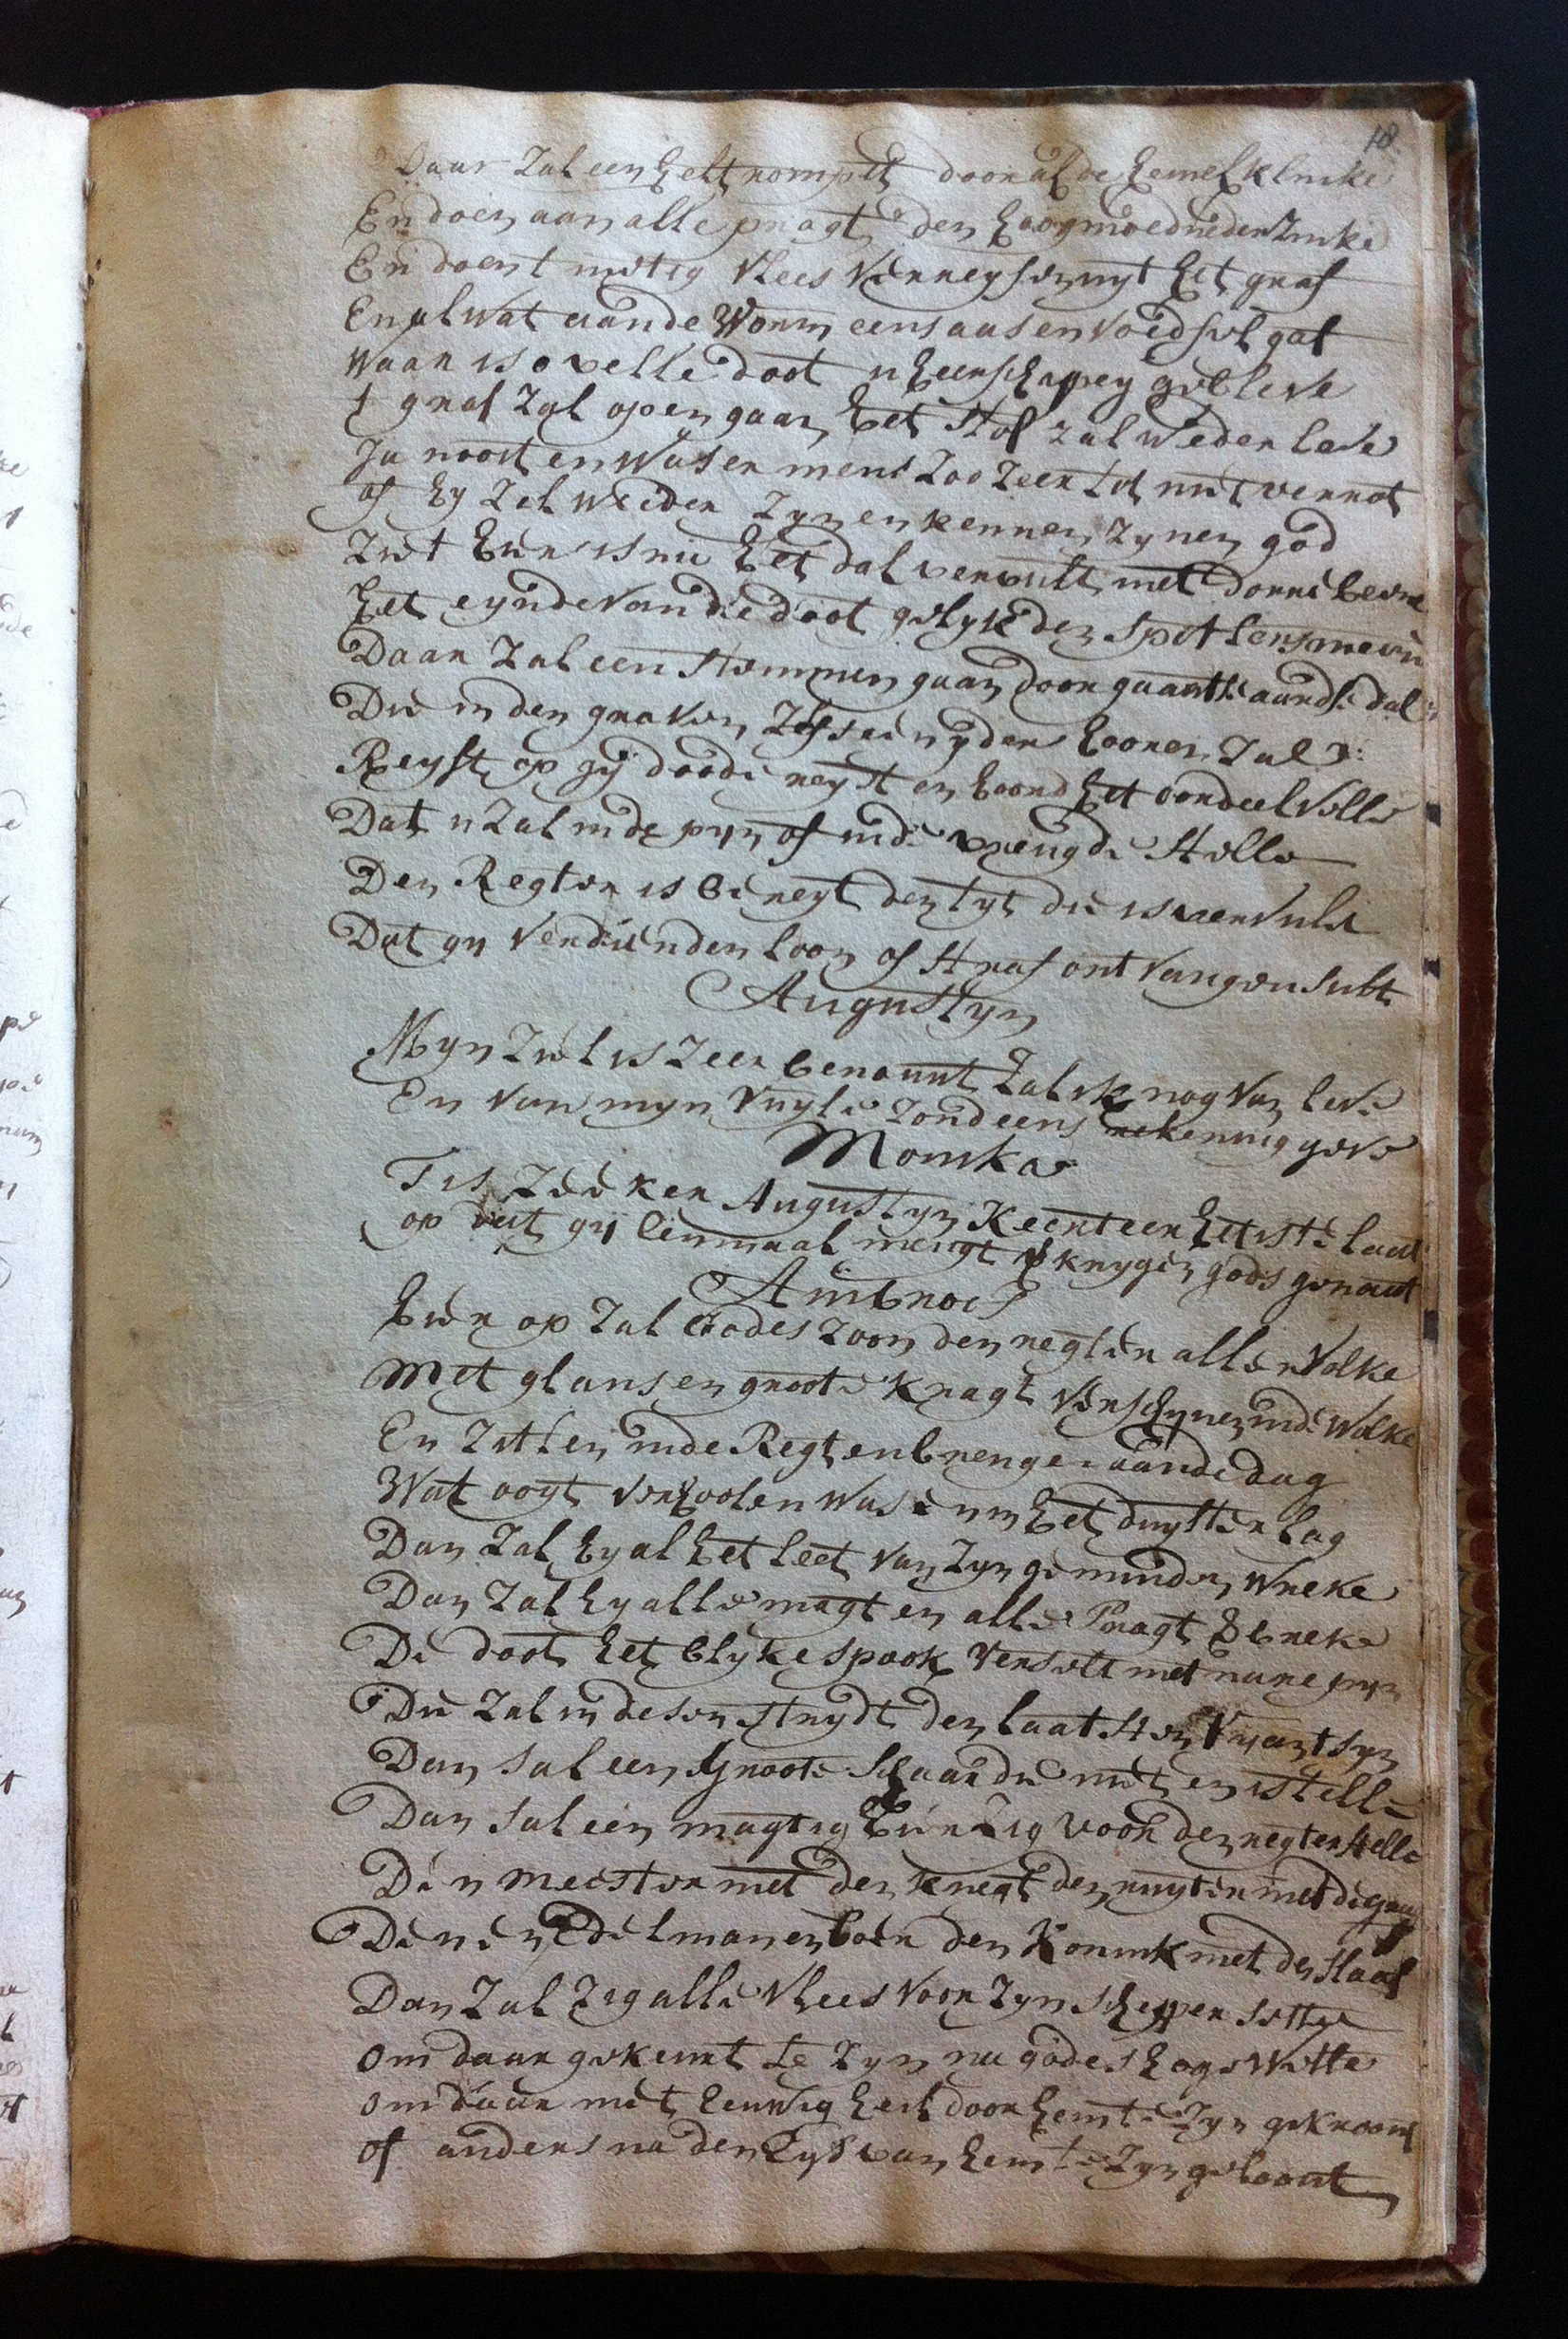 18
Daar Zal een helt trompet door al de hemel klinke
En doen aan alle pragt den hoogmoed neder Zinke
En doen t nietig vlees verreysen uyt het graf
En al wat aan de Worm eens aas en voedsel gaf
Waar is o velle doot u heerschappey gebleve
t graf Zal open gaan het stof zal weder leve
Ja nooit en was er mens Zoo Zeer tot niet verrot
of hy Zel weder Zyn en kennen Zynen god
Ziet hier is nu het dal vervult met dorre beene
het eynde van die doot gelyk den
Daar Zal een stemme gaan door
Die in den graven Zelf een yder hooren Zal
Reyst op gy doode reyst en hoord het oordeel velle
Dat u Zal in de pyn of in de vreugde stelle
Den Regter is bereyt den tyt die is vervult
Dat gy verdienden loon of straf ontvangen sult
Augustyn
Myn Ziel is Zeer benauut Zal ik nog van leve
En van myn vuyle Zond eens rekening geve
Monika
Tis Zeeker Augustyn Keert eer het is te laat
op dat gy eenmaal meugt krygen gods genaat
Ambrois
hier op Zal Godes Zoon den regter aller Volke
Met glans en groote Kragt verschynen in de Wolke
En Zitten in de Regt en brengen aan de dag
Wat ooyt verhoolen was en in het duyster lag
Dan Zal hy al het leet van Zyn geminden wreke
Dan Zal hy alle magt en alle Pragt verbreke
De doot het blyke spook verselt met nare pyn
Die Zal in desen strydt den laatsten vyant syn
Dan sal een groote schaar die niet en is te telle
Dan sal een magtig heir Zig voor den regter stelle
Den meester met den knegt den ruyter met de
Den en Edelman en boer den Konink met de slaaf
Dan Zal Zig alle vlees voor Zyn schepper sette
om daar gekeurt te Zyn na godes hoge wette
om daar met eeuwig heil door hem te Zyn gekroont
of anders na den Eys van hem te Zyn geloont